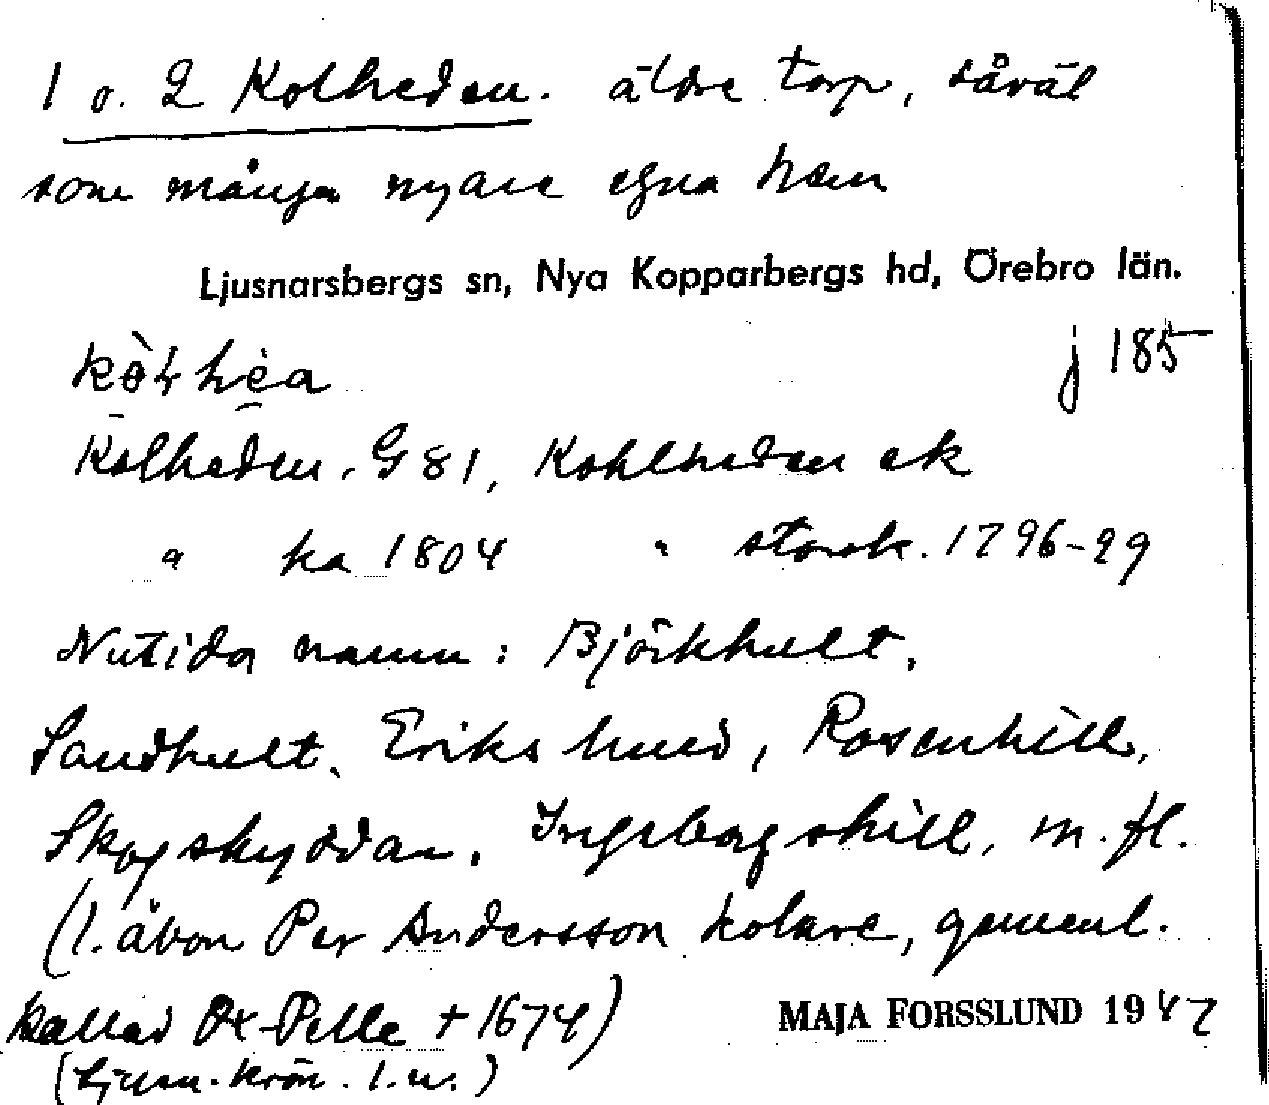 1 o. 2 Kolheden. äldre torp, såväl
som många nyare egna hem
Ljusnarsbergs sn, Nya Kopparbergs hd, Örebro län.
j 185
Kolheden. G 81, Kohlheden ek
" ka 1804 " storsk. 1796-99
Nutida namn: Björkhult,
Sandhult, Erikslund, Rosenhill,
Skogskyddan, Ingeborgshill, m. fl.
(1. åbon Per Andersson kolare, gemenl.
kallad Ox-Pelle + 1674)
MAJA FORSSLUND 1947
(Ljusn. krön. 1. u.)